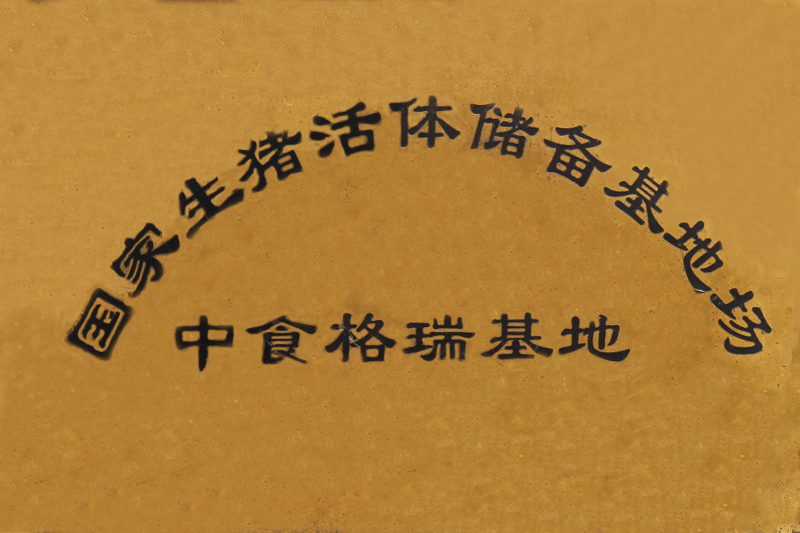 国家生猪活体储备基地场
中食格瑞基地